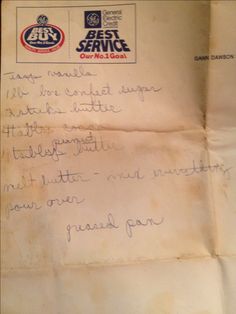 BEST
BUY
General
Electric
Credit
BEST
SERVICE
Our No.1 Goal.
DAWN DAWSON
vanilla
1 lb box confect sugar
2 sticks butter
4 tables cocoa
peanut
butter
melt butter - mix everything
pour over
greased pan